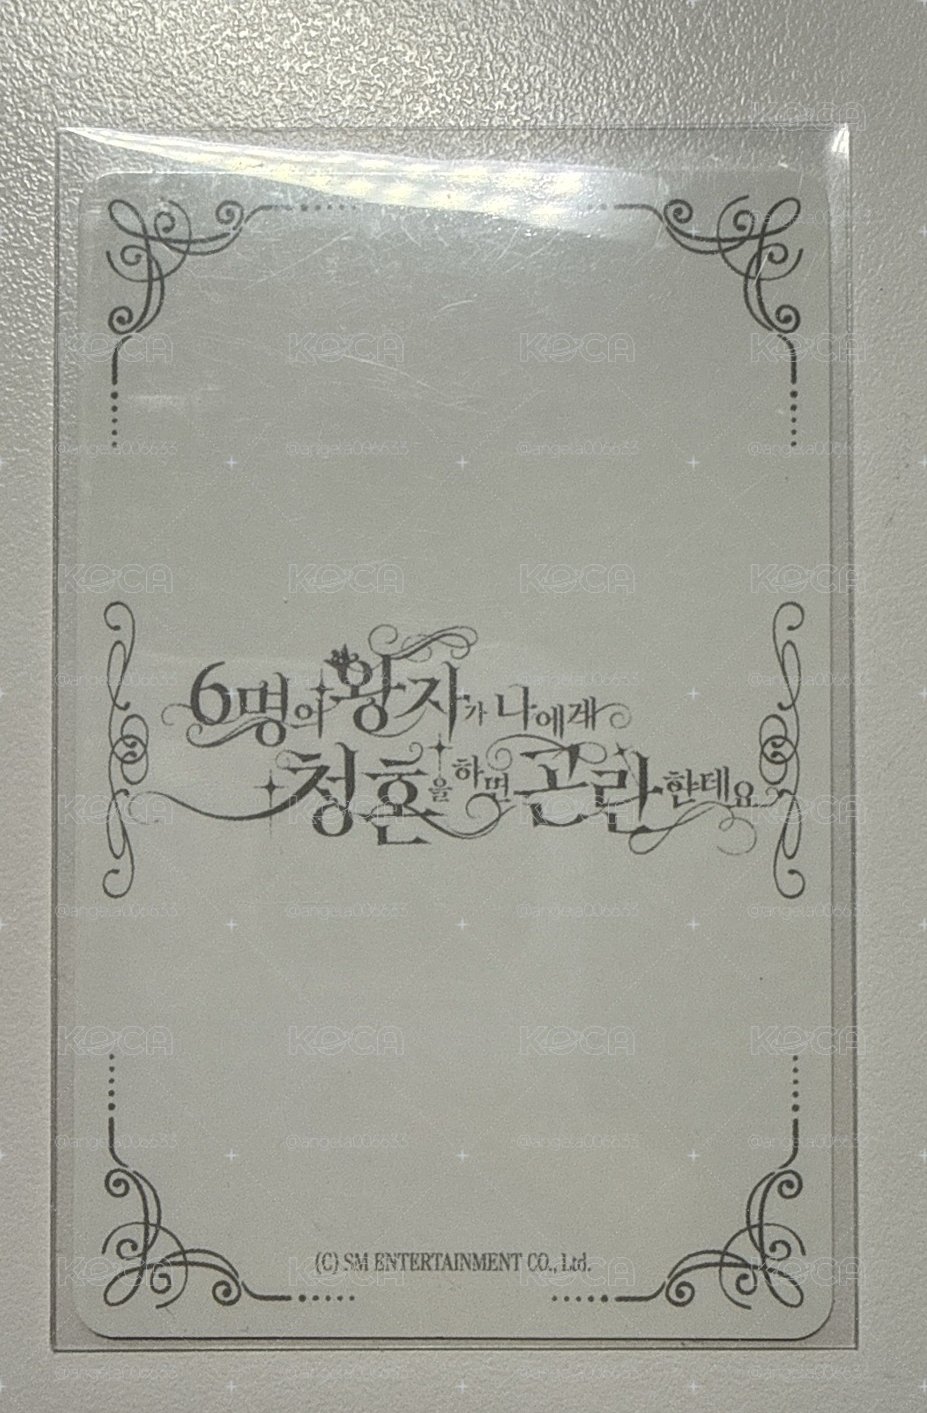 6명의 왕자가 나에게
청혼을 하면 곤란한데요
(C) SM ENTERTAINMENT CO., Ltd.
KOCA
@angela006633